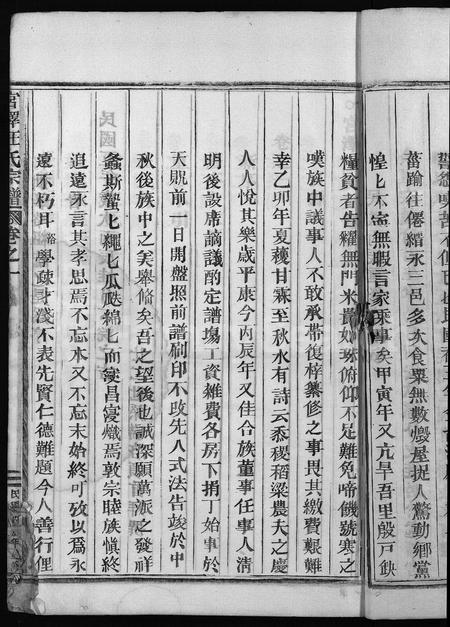 蕃踰往僊縉永三邑多大食粟無數燬屋捉人驚動鄉黨
惶匕不寧無暇言家乘事矣甲寅年又亢旱吾里殷戶缺
糧貧者告糴無門米貴如珠俯仰不足難免啼饑號寒之
嘆族中議事人不敢承帶復梓纂修之事畏其繳費艱難
幸乙卯年夏穫甘霖至秋水有詩云黍稷稻粱農夫之慶
人人悅其樂歲平康今丙辰年又佳合族董事任事人清
明後設席謫議酌定譜塲工資雜費各房丁捐丁始事於
天貺前一日開盤照前譜刷印不改先人式法告竣於中
秋後族中之美舉脩矣吾之望後也誠深願萬派之發祥
螽斯蟄匕繩匕瓜瓞綿匕而寖昌寖熾焉敦宗睦族愼終
追遠永言其孝思焉不忘本又不忘末始終可攷以爲永
遠不朽耳裕學疎才淺不表先賢仁德難題今人善行俚
宮澤汪氏宗譜 卷之一